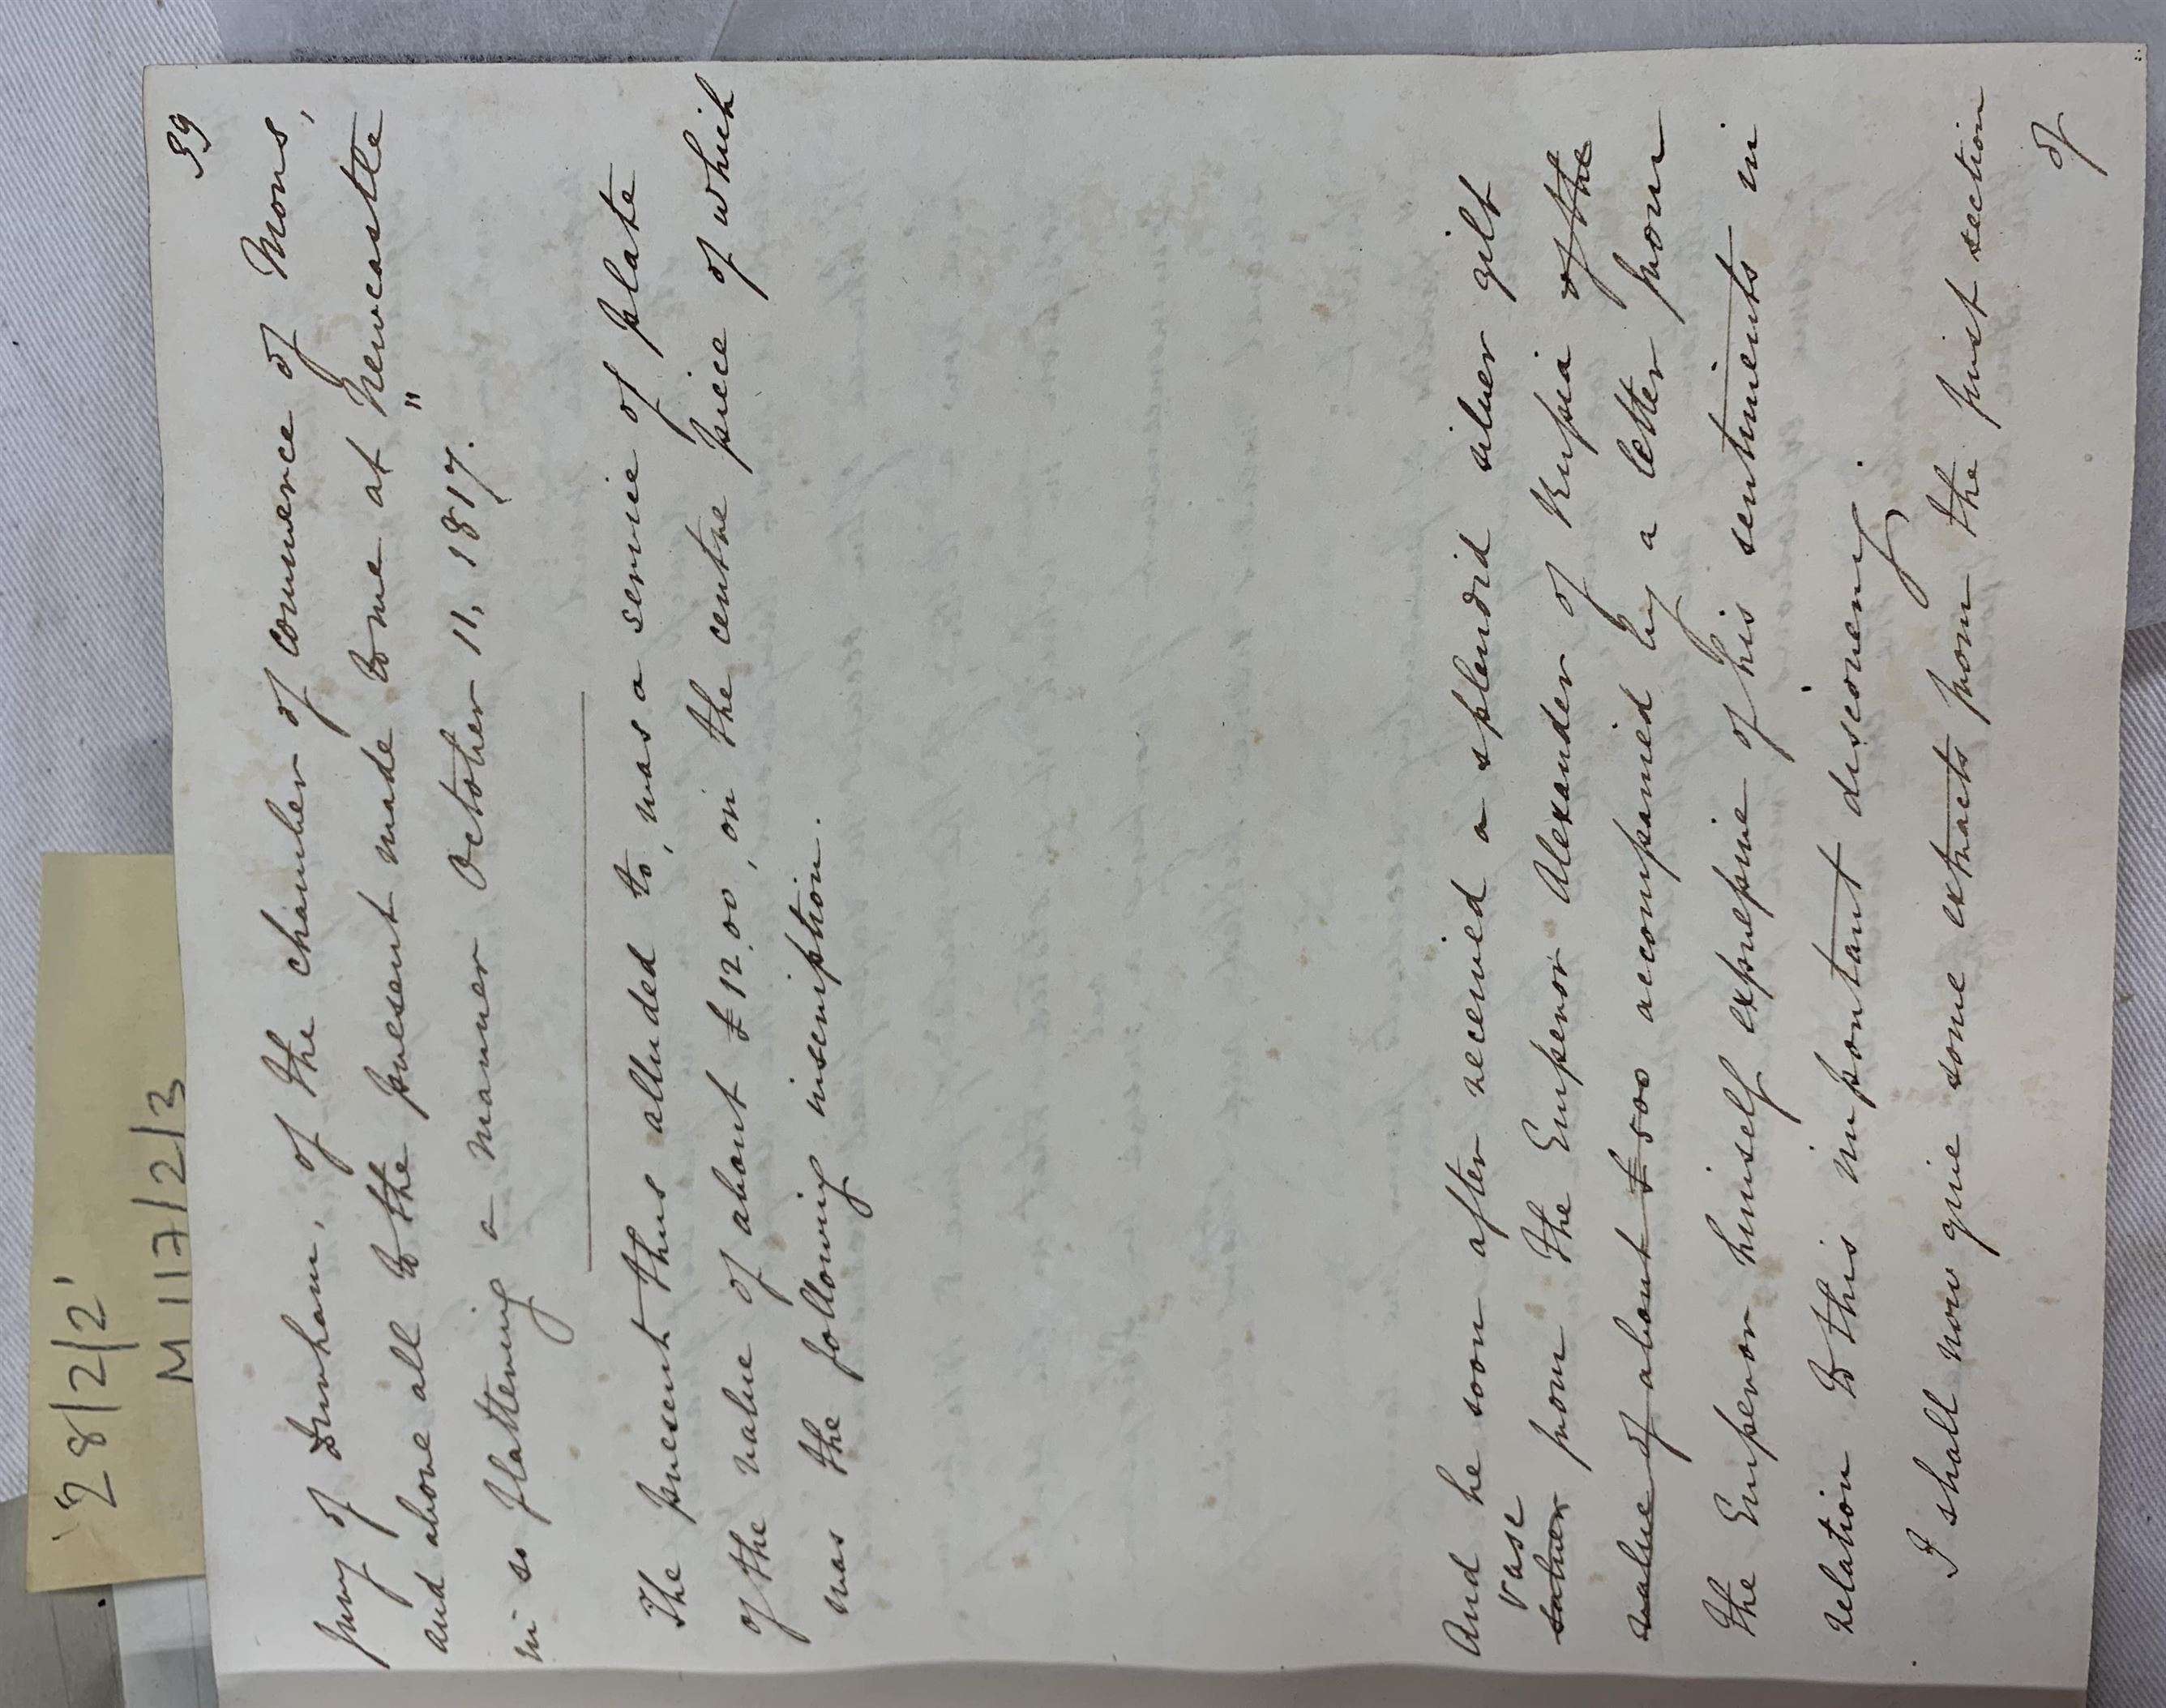 '28/2/2'
M117/2/3
59
jury of Durham, of the chamber of commerce of Mons,
and above all to the present made to me at Newcastle
in so flattering a manner October 11, 1817."
The present thus alluded to, was a service of plate
of the value of about £12.00, on the centre piece of which
was the following inscription.
And he soon after received a splendid silver gilt
vase
salver from the Emperor Alexander of Russia of the
value of about £500 accompanied by a letter from
the Emperor himself expressive of his sentiments in
relation to this important discovery.
I shall now give some extracts from the first section
of